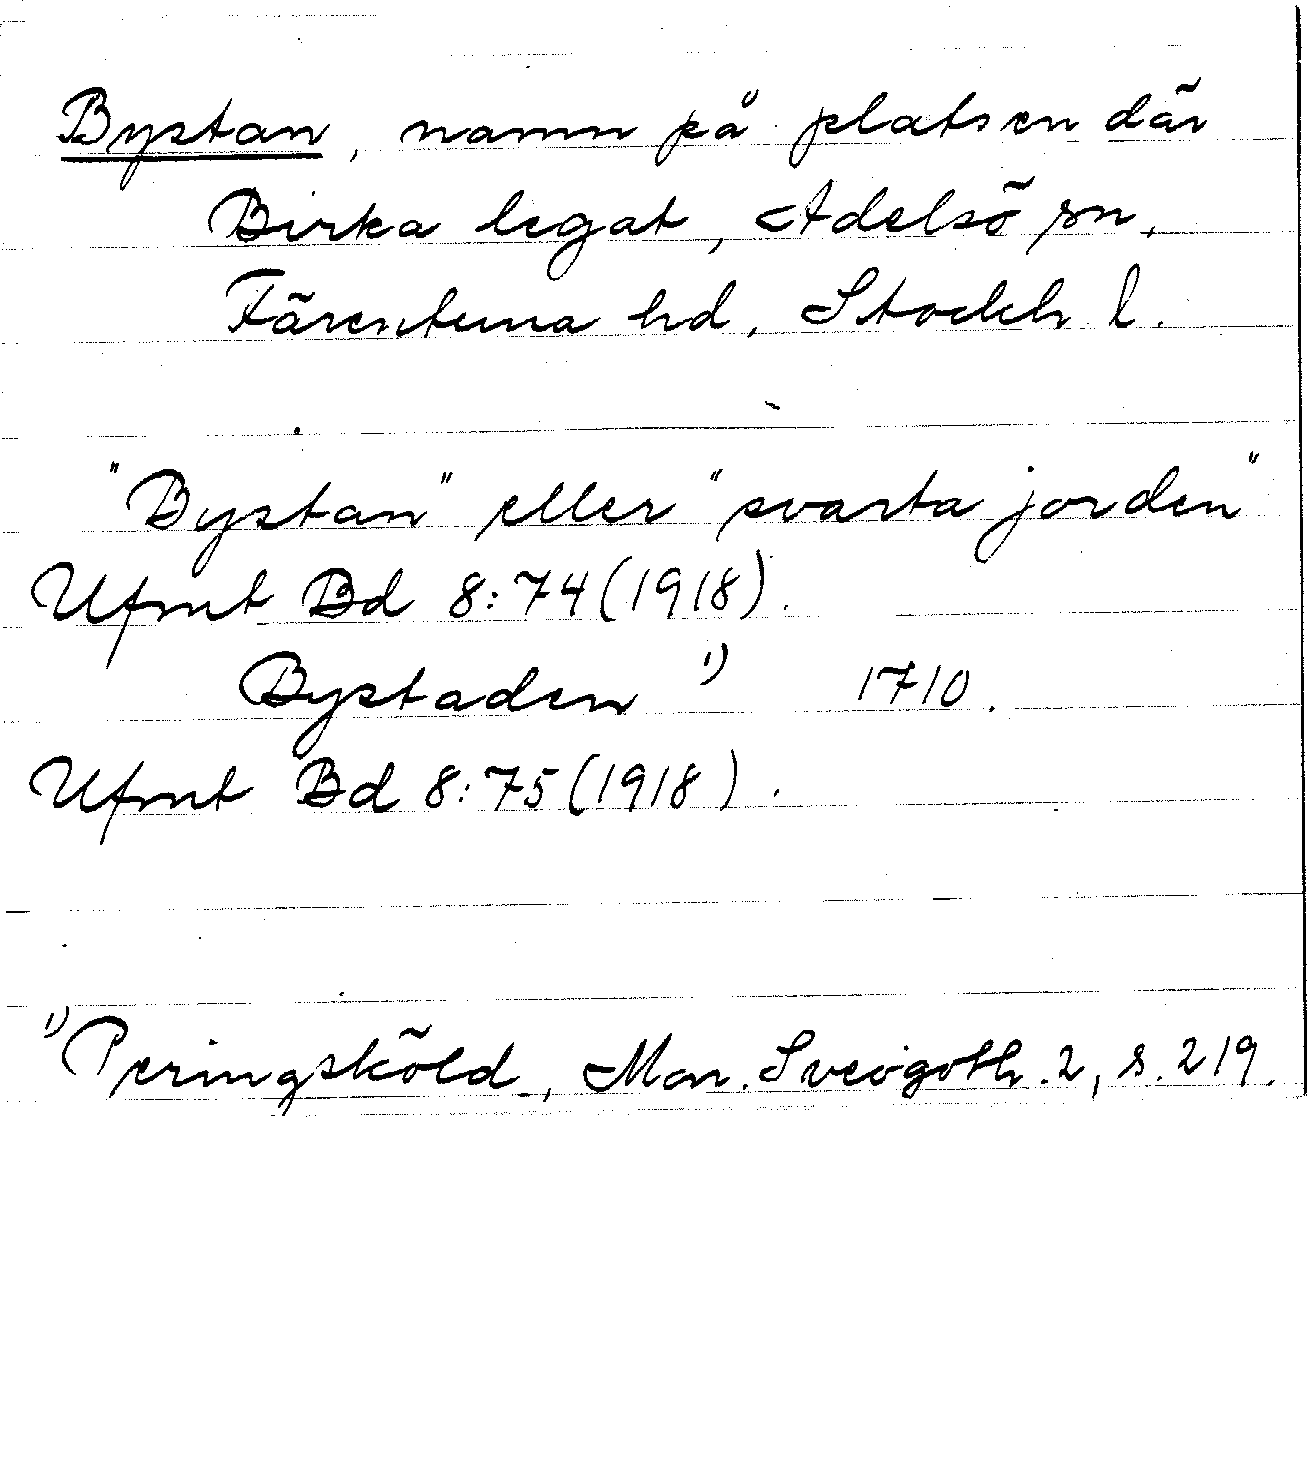 Bystan, namn på platsen där
Birka legat, Adelsö sn,
Färentuna hd, Stockh l.
"Bystan" eller "svarta jorden"
Ufmt Bd 8:74 (1918).
Bystaden 1) 1710.
Ufmt Bd 8:75 (1918).
1) Peringsköld, Mon. Sveogoth. 2, s. 219.